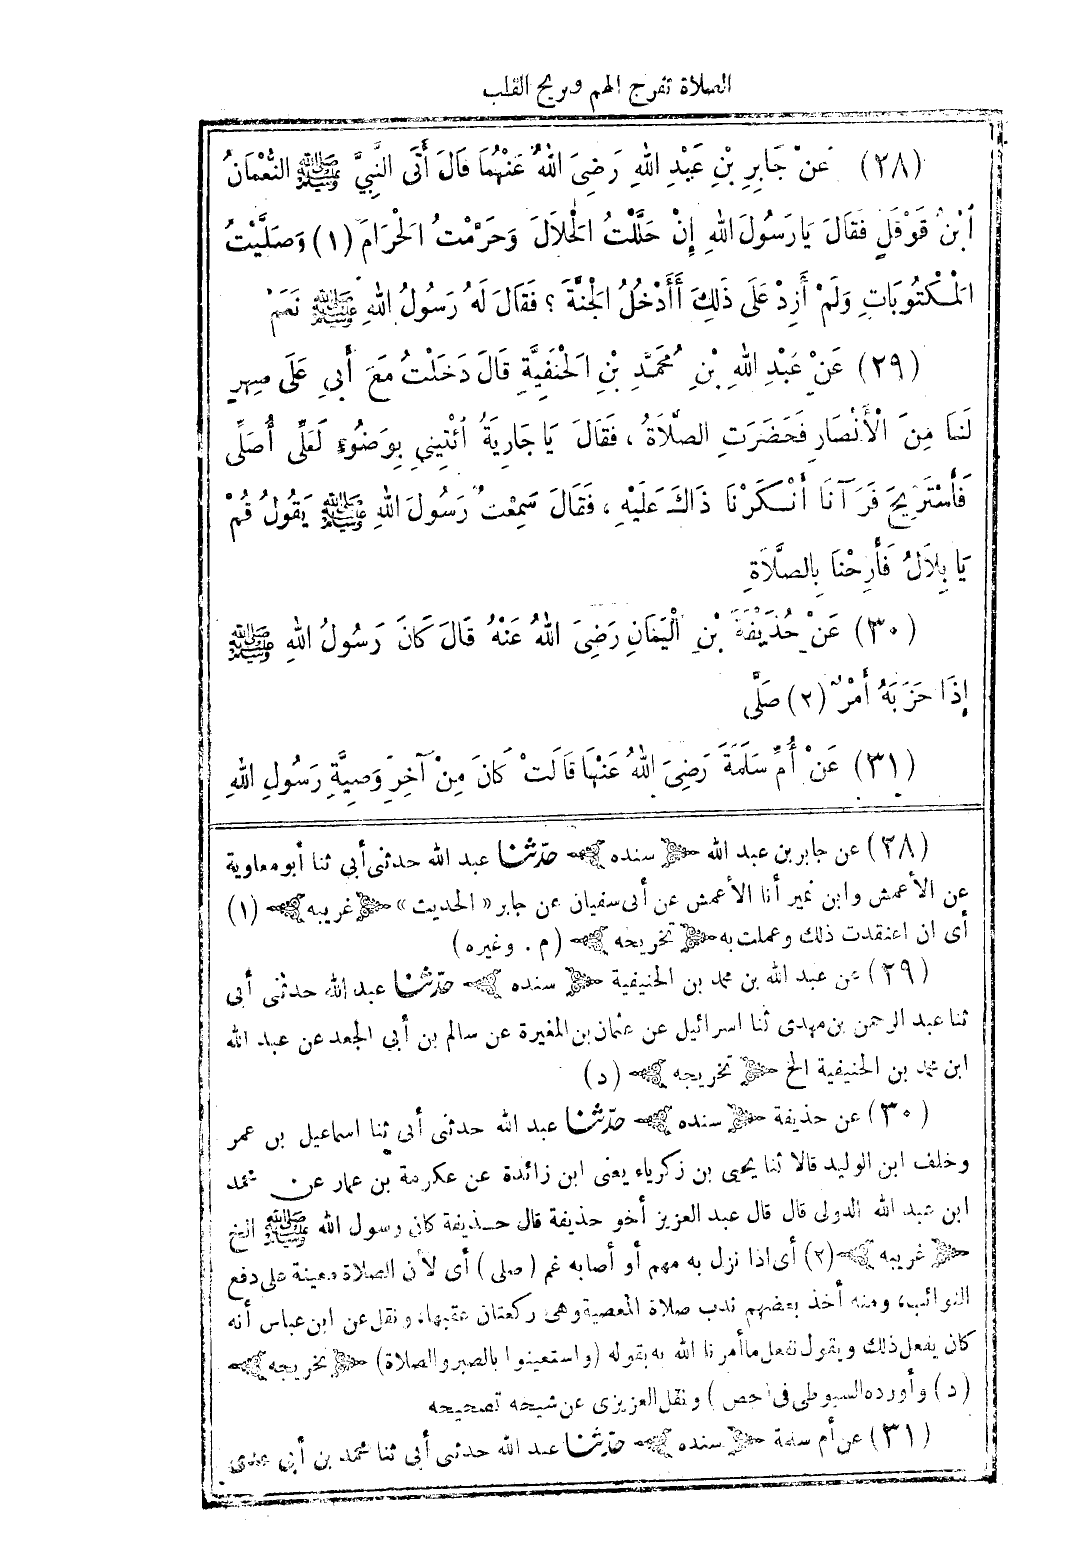 الصلاة تفرج الهم وتريح القلب
(٢٨) عَنْ جَابِرِ بْنِ عَبْدِ اللهِ رَضِيَ اللهُ عَنْهُمَا قَالَ أَتَى النَّبِيَّ ﷺ النُّعْمَانُ
ابْنُ قَوْقَلٍ فَقَالَ يَا رَسُولَ اللهِ إِنْ حَلَّلْتُ الْحَلَالَ وَحَرَّمْتُ الْحَرَامَ (١) وَصَلَّيْتُ
الْمَكْتُوبَاتِ وَلَمْ أَزِدْ عَلَى ذَلِكَ أَأَدْخُلُ الْجَنَّةَ ؟ فَقَالَ لَهُ رَسُولُ اللهِ ﷺ نَعَمْ
(٢٩) عَنْ عَبْدِ اللهِ بْنِ مُحَمَّدِ بْنِ الْحَنَفِيَّةِ قَالَ دَخَلْتُ مَعَ أَبِي عَلَى صِهْرٍ
لَنَا مِنَ الْأَنْصَارِ فَحَضَرَتِ الصَّلَاةُ ، فَقَالَ يَا جَارِيَةُ ائْتِينِي بِوَضُوءٍ لَعَلِّي أُصَلِّي
فَأَسْتَرِيحَ فَرَآنَا أَنْكَرْنَا ذَاكَ عَلَيْهِ ، فَقَالَ سَمِعْتُ رَسُولَ اللهِ ﷺ يَقُولُ قُمْ
يَا بِلَالُ فَأَرِحْنَا بِالصَّلَاةِ
(٣٠) عَنْ حُذَيْفَةَ بْنِ الْيَمَانِ رَضِيَ اللهُ عَنْهُ قَالَ كَانَ رَسُولُ اللهِ ﷺ
إِذَا حَزَبَهُ أَمْرٌ (٢) صَلَّى
(٣١) عَنْ أُمِّ سَلَمَةَ رَضِيَ اللهُ عَنْهَا قَالَتْ كَانَ مِنْ آخِرِ وَصِيَّةِ رَسُولِ اللهِ
(٢٨) عن جابر بن عبد الله ﴿ سنده ﴾ حدّثنا عبد الله حدثني أبي ثنا أبو معاوية
عن الأعمش وابن نمير أنا الأعمش عن أبي سفيان عن جابر « الحديث » ﴿ غريبه ﴾ (١)
أى ان اعتقدت ذلك وعملت به ﴿ تخريجه ﴾ (م . وغيره)
(٢٩) عن عبد الله بن محمد بن الحنيفية ﴿ سنده ﴾ حدّثنا عبد الله حدثنى أبى
ثنا عبد الرحمن بن مهدى ثنا اسرائيل عن عثمان بن المغيرة عن سالم بن أبي الجعد عن عبد الله
ابن محمد بن الحنيفية الخ ﴿ تخريجه ﴾ (د)
(٣٠) عن حذيفة ﴿ سنده ﴾ حدّثنا عبد الله حدثنى أبى ثنا اسماعيل بن عمر
وخلف ابن الوليد قالا ثنا يحيى بن زكرياء يعنى ابن زائدة عن عكرمة بن عمار عن محمد
ابن عبد الله الدولى قال قال عبد العزيز أخو حذيفة قال حذيفة كان رسول الله ﷺ الخ
﴿ غريبه ﴾ (٢) أى اذا نزل به مهم أو أصابه غم (صلى) أى لأن الصلاة معينة على دفع
النوائب، ومنه أخذ بعضهم ندب صلاة المعصية وهى ركعتان عقبها، ونقل عن ابن عباس أنه
كان يفعل ذلك ويقول نفعل ما أمرنا الله به بقوله (واستعينوا بالصبر والصلاة) ﴿ تخريجه ﴾
(د) وأورده السيوطى فى (خص) ونقل العزيزى عن شيخه تصحيحه
(٣١) عن أم سلمة ﴿ سنده ﴾ حدّثنا عبد الله حدثنى أبى ثنا محمد بن أبي عدى